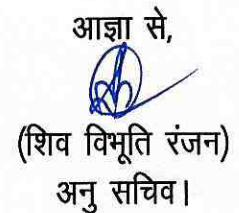 आज्ञा से,
(शिव विभूति रंजन)
अनु सचिव।